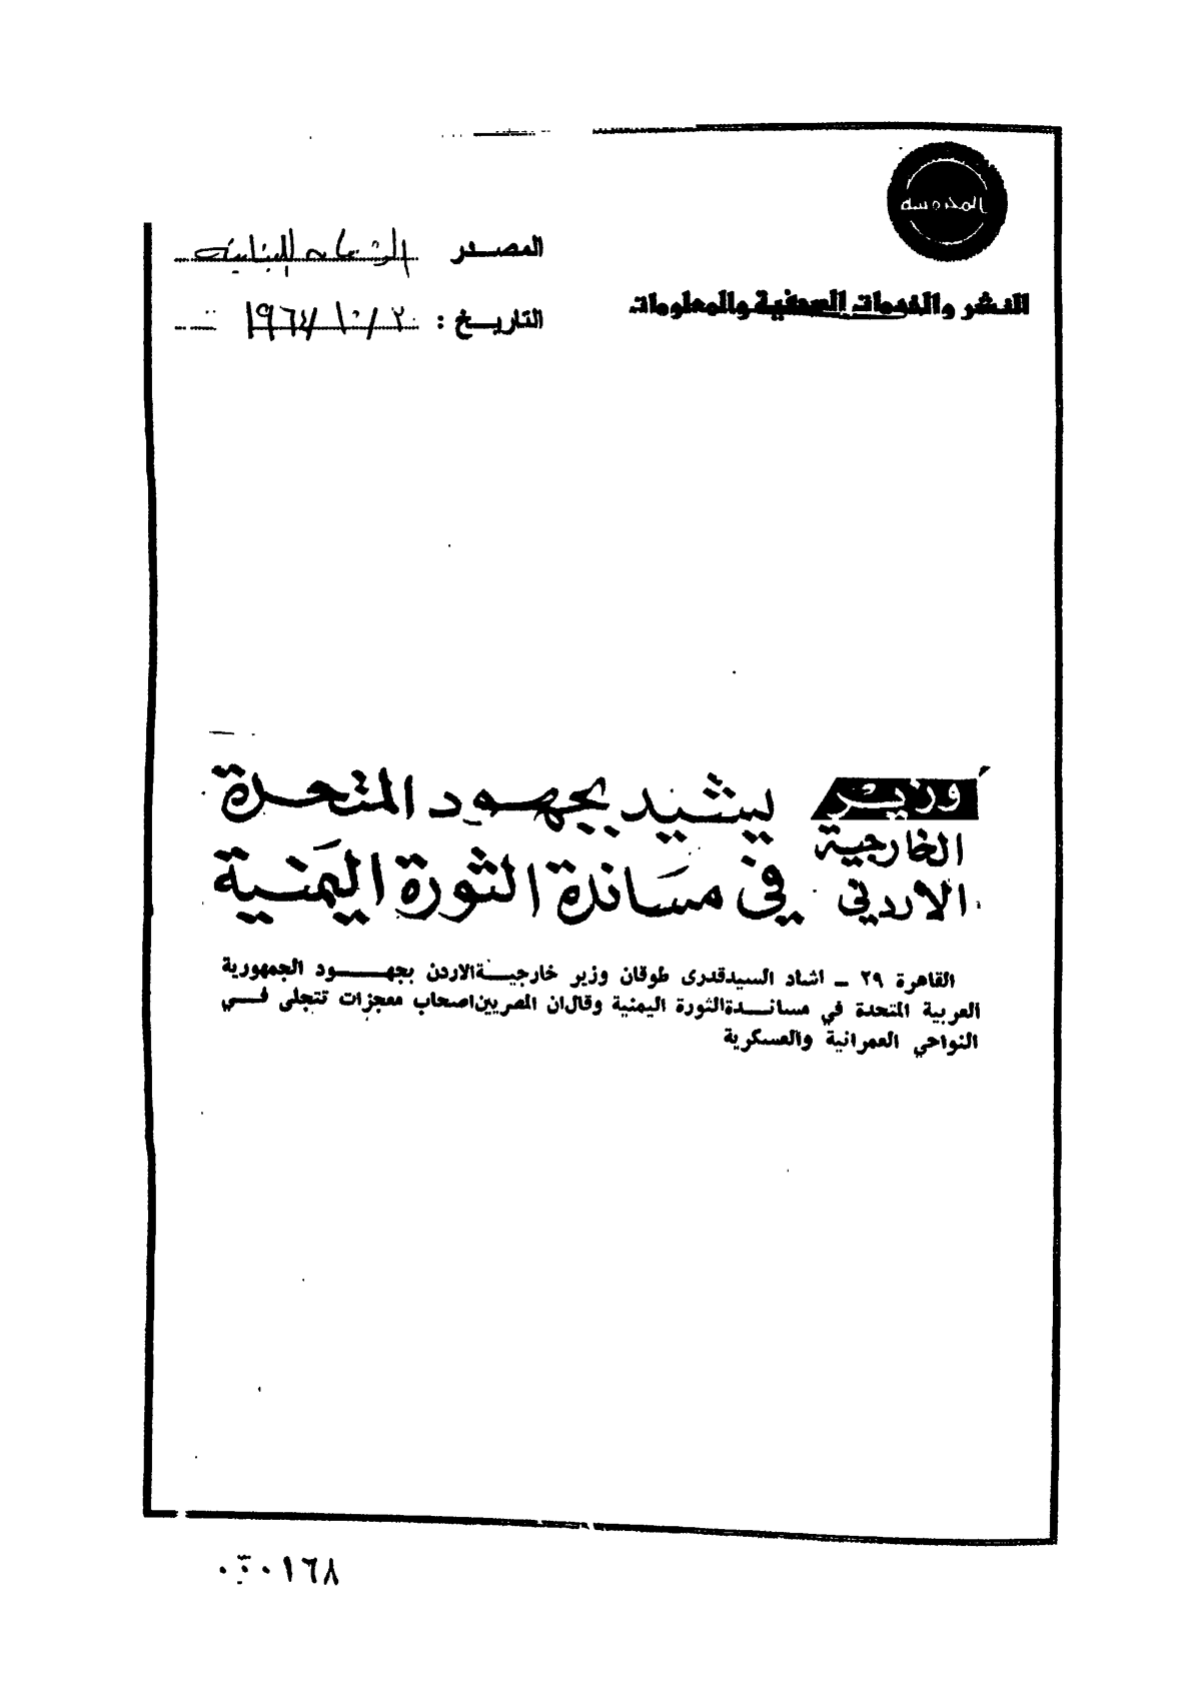 المحروسة
النشر والخدمات الصحفية والمعلومات
المصدر
التاريخ : ٣٠/١٠/١٩٦٤
وزير الخارجية الاردني
يشيد بجهود المتحدة
في مساندة الثورة اليمنية
القاهرة ٢٩ ــ اشاد السيدقدرى طوقان وزير خارجيةالاردن بجهود الجمهورية
العربية المتحدة في مساندةالثورة اليمنية وقال‌ان المصريين‌اصحاب معجزات تتجلى في
النواحي العمرانية والعسكرية
١٦٨